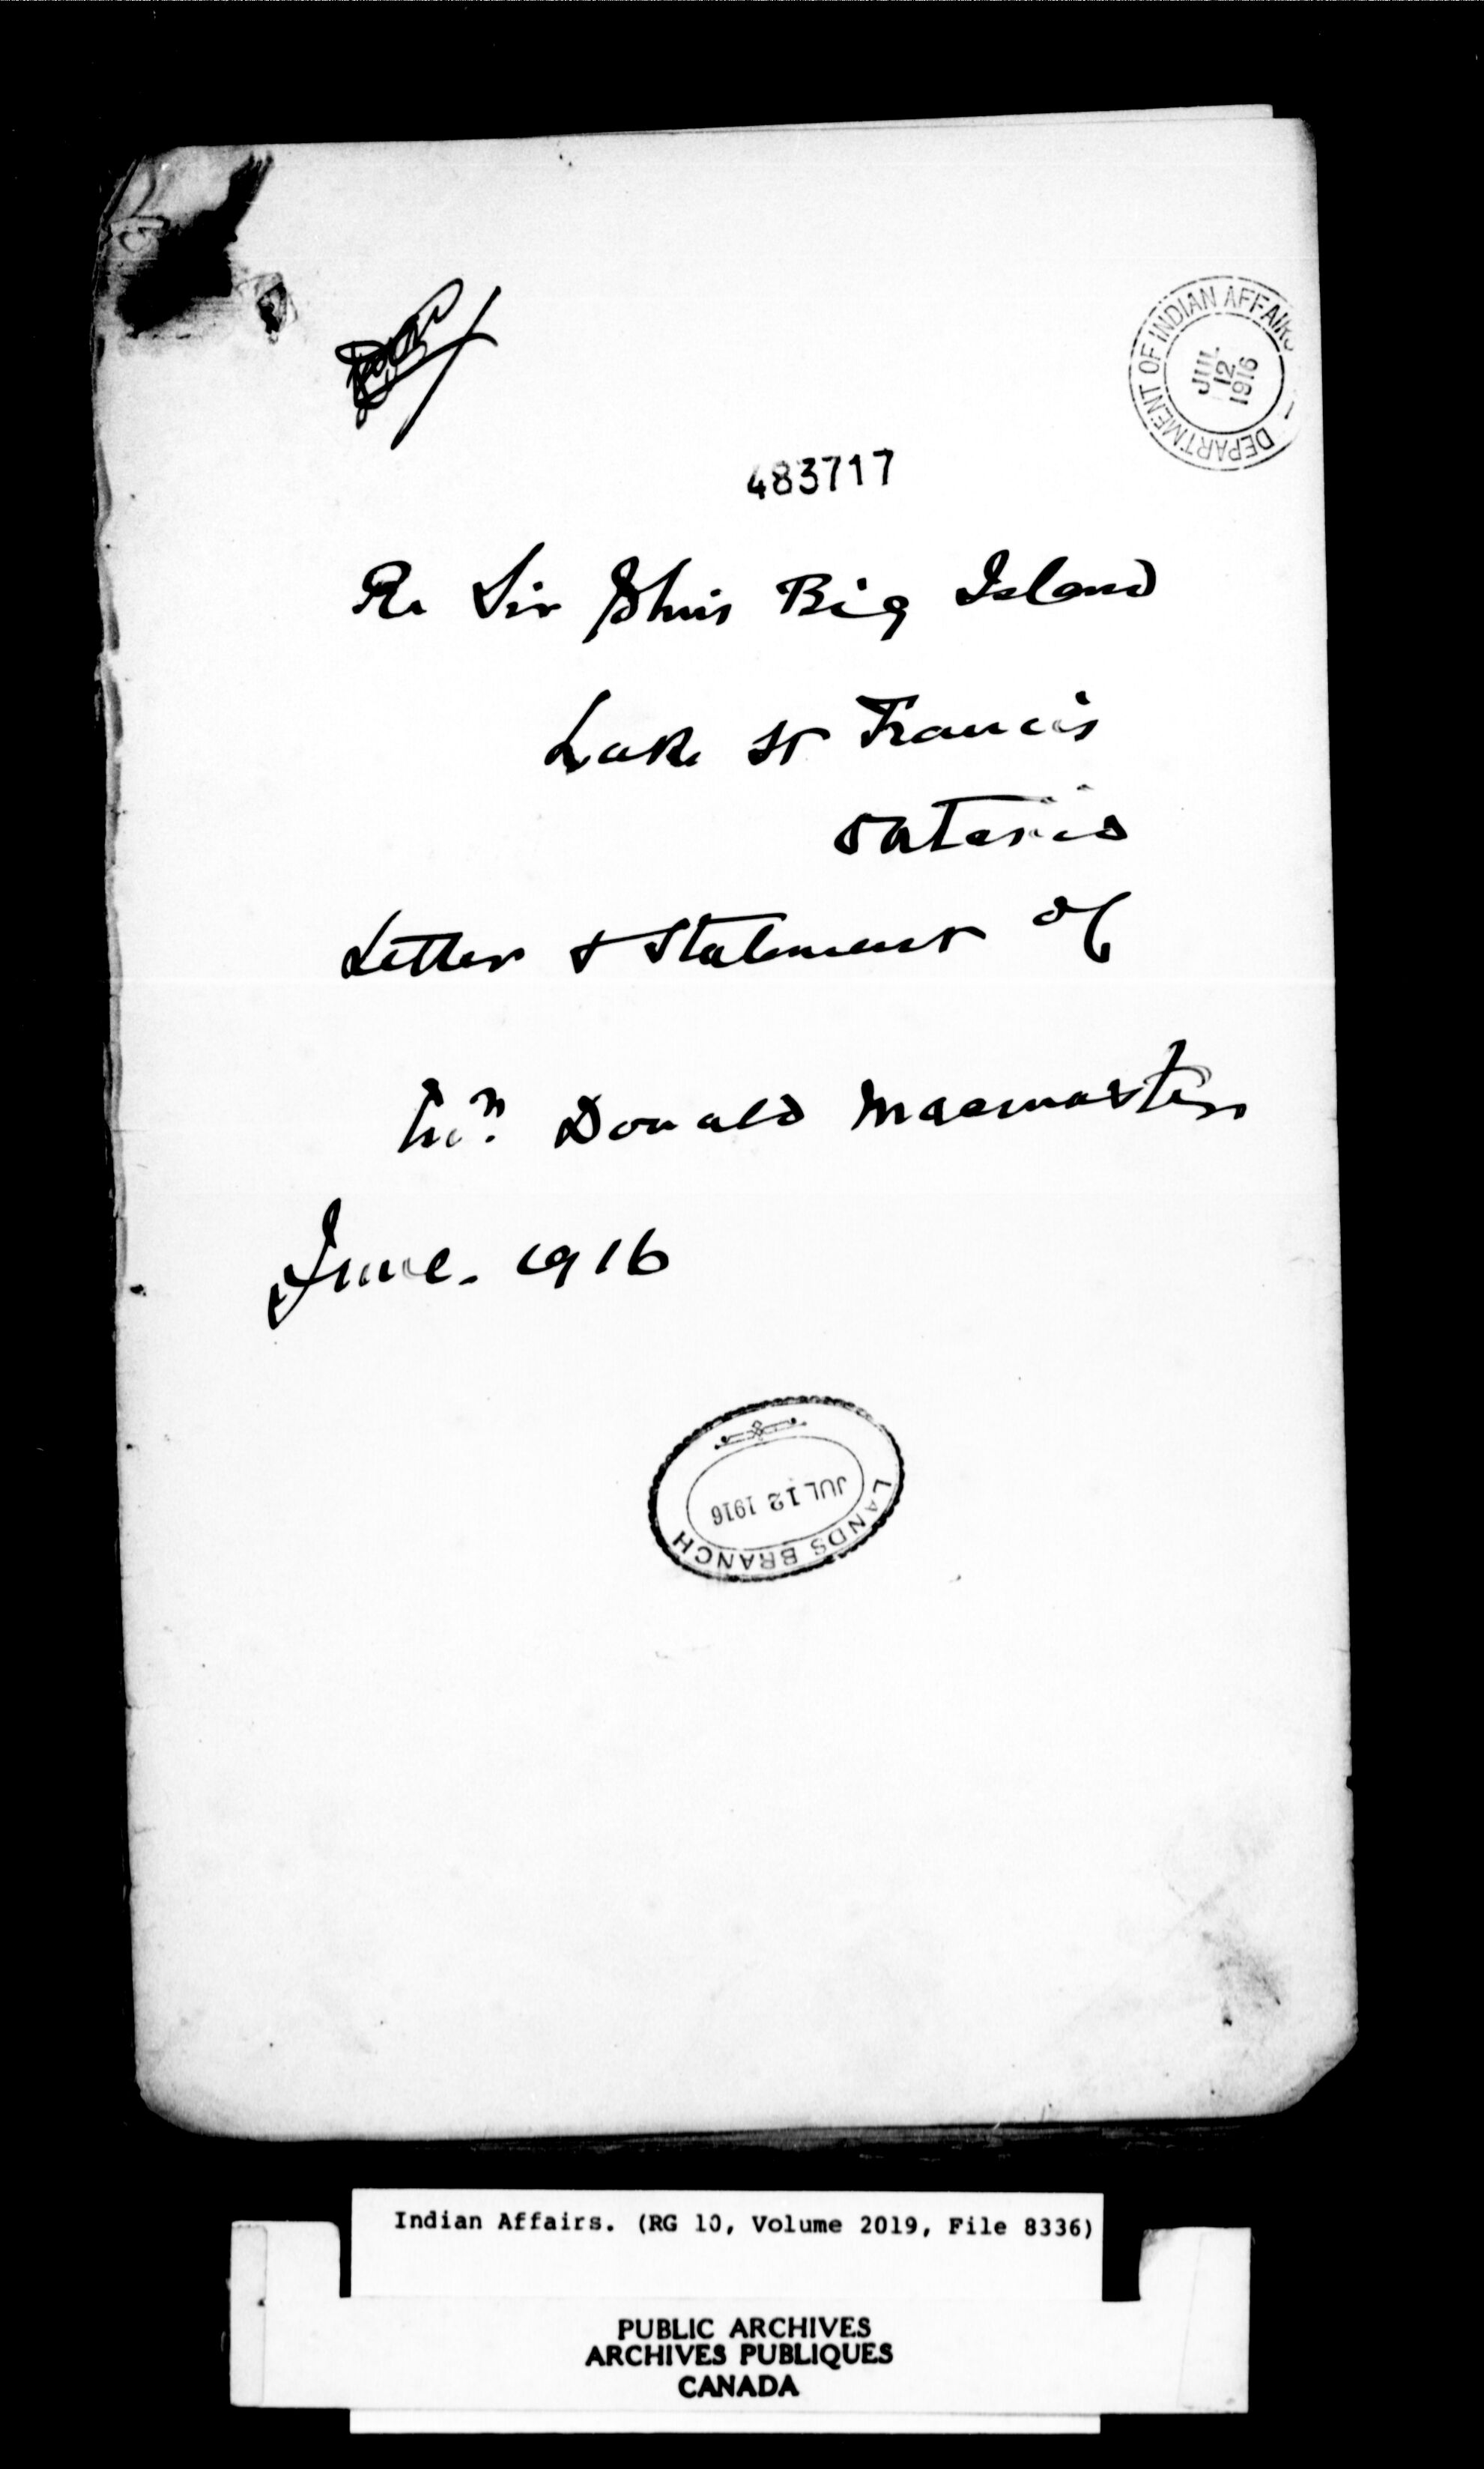 DEPARTMENT OF INDIAN AFFAIRS
JUL 12 1916
483717
Re Sir Johns Big Island
Lake St Francis
Ontario
Letter & Statement of
Donald Macmaster
June. 1916
LANDS BRANCH
JUL 12 1916
Indian Affairs. (RG 10, Volume 2019, File 8336)
PUBLIC ARCHIVES
ARCHIVES PUBLIQUES
CANADA